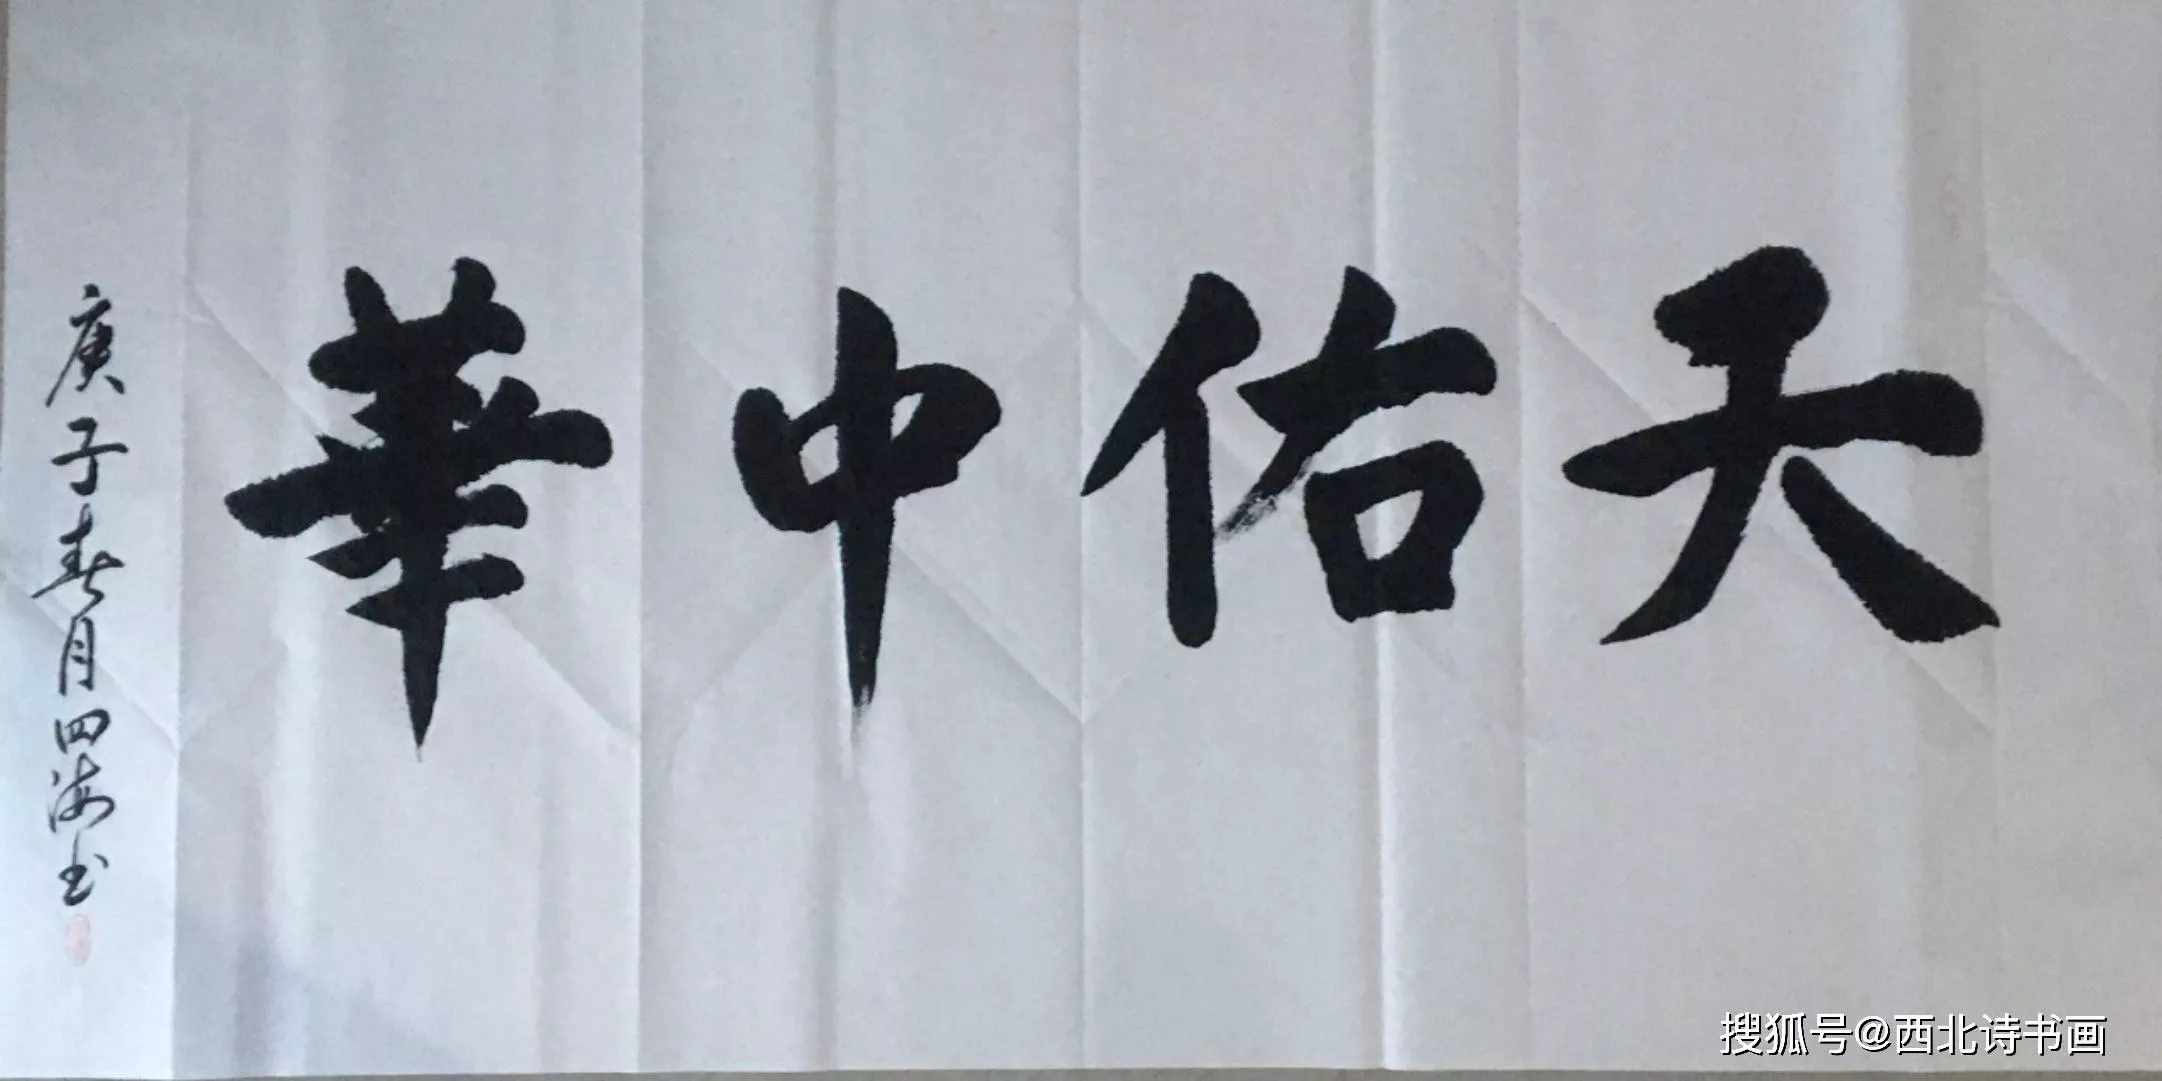 天佑中華
庚子春月四海书
搜狐号@西北诗书画